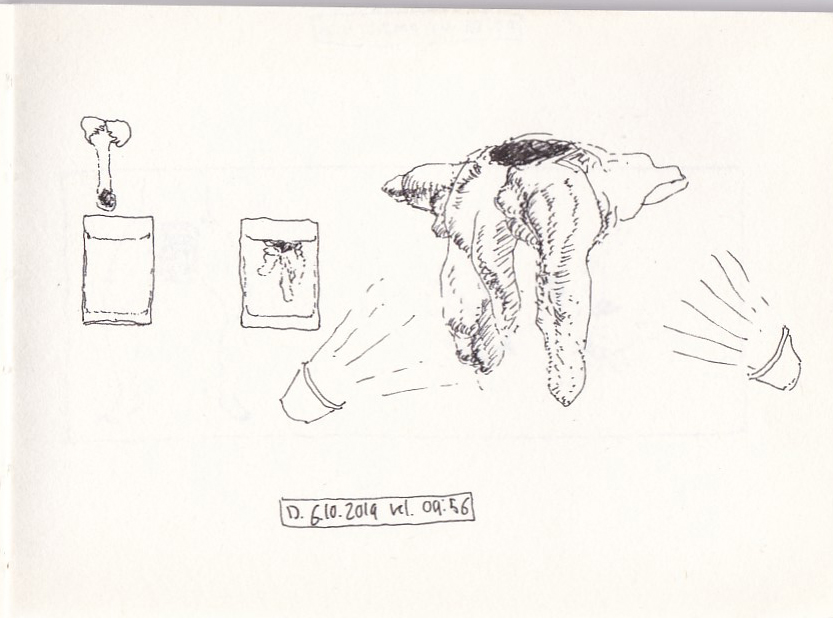 D. 6.10.2019 kl. 09:56